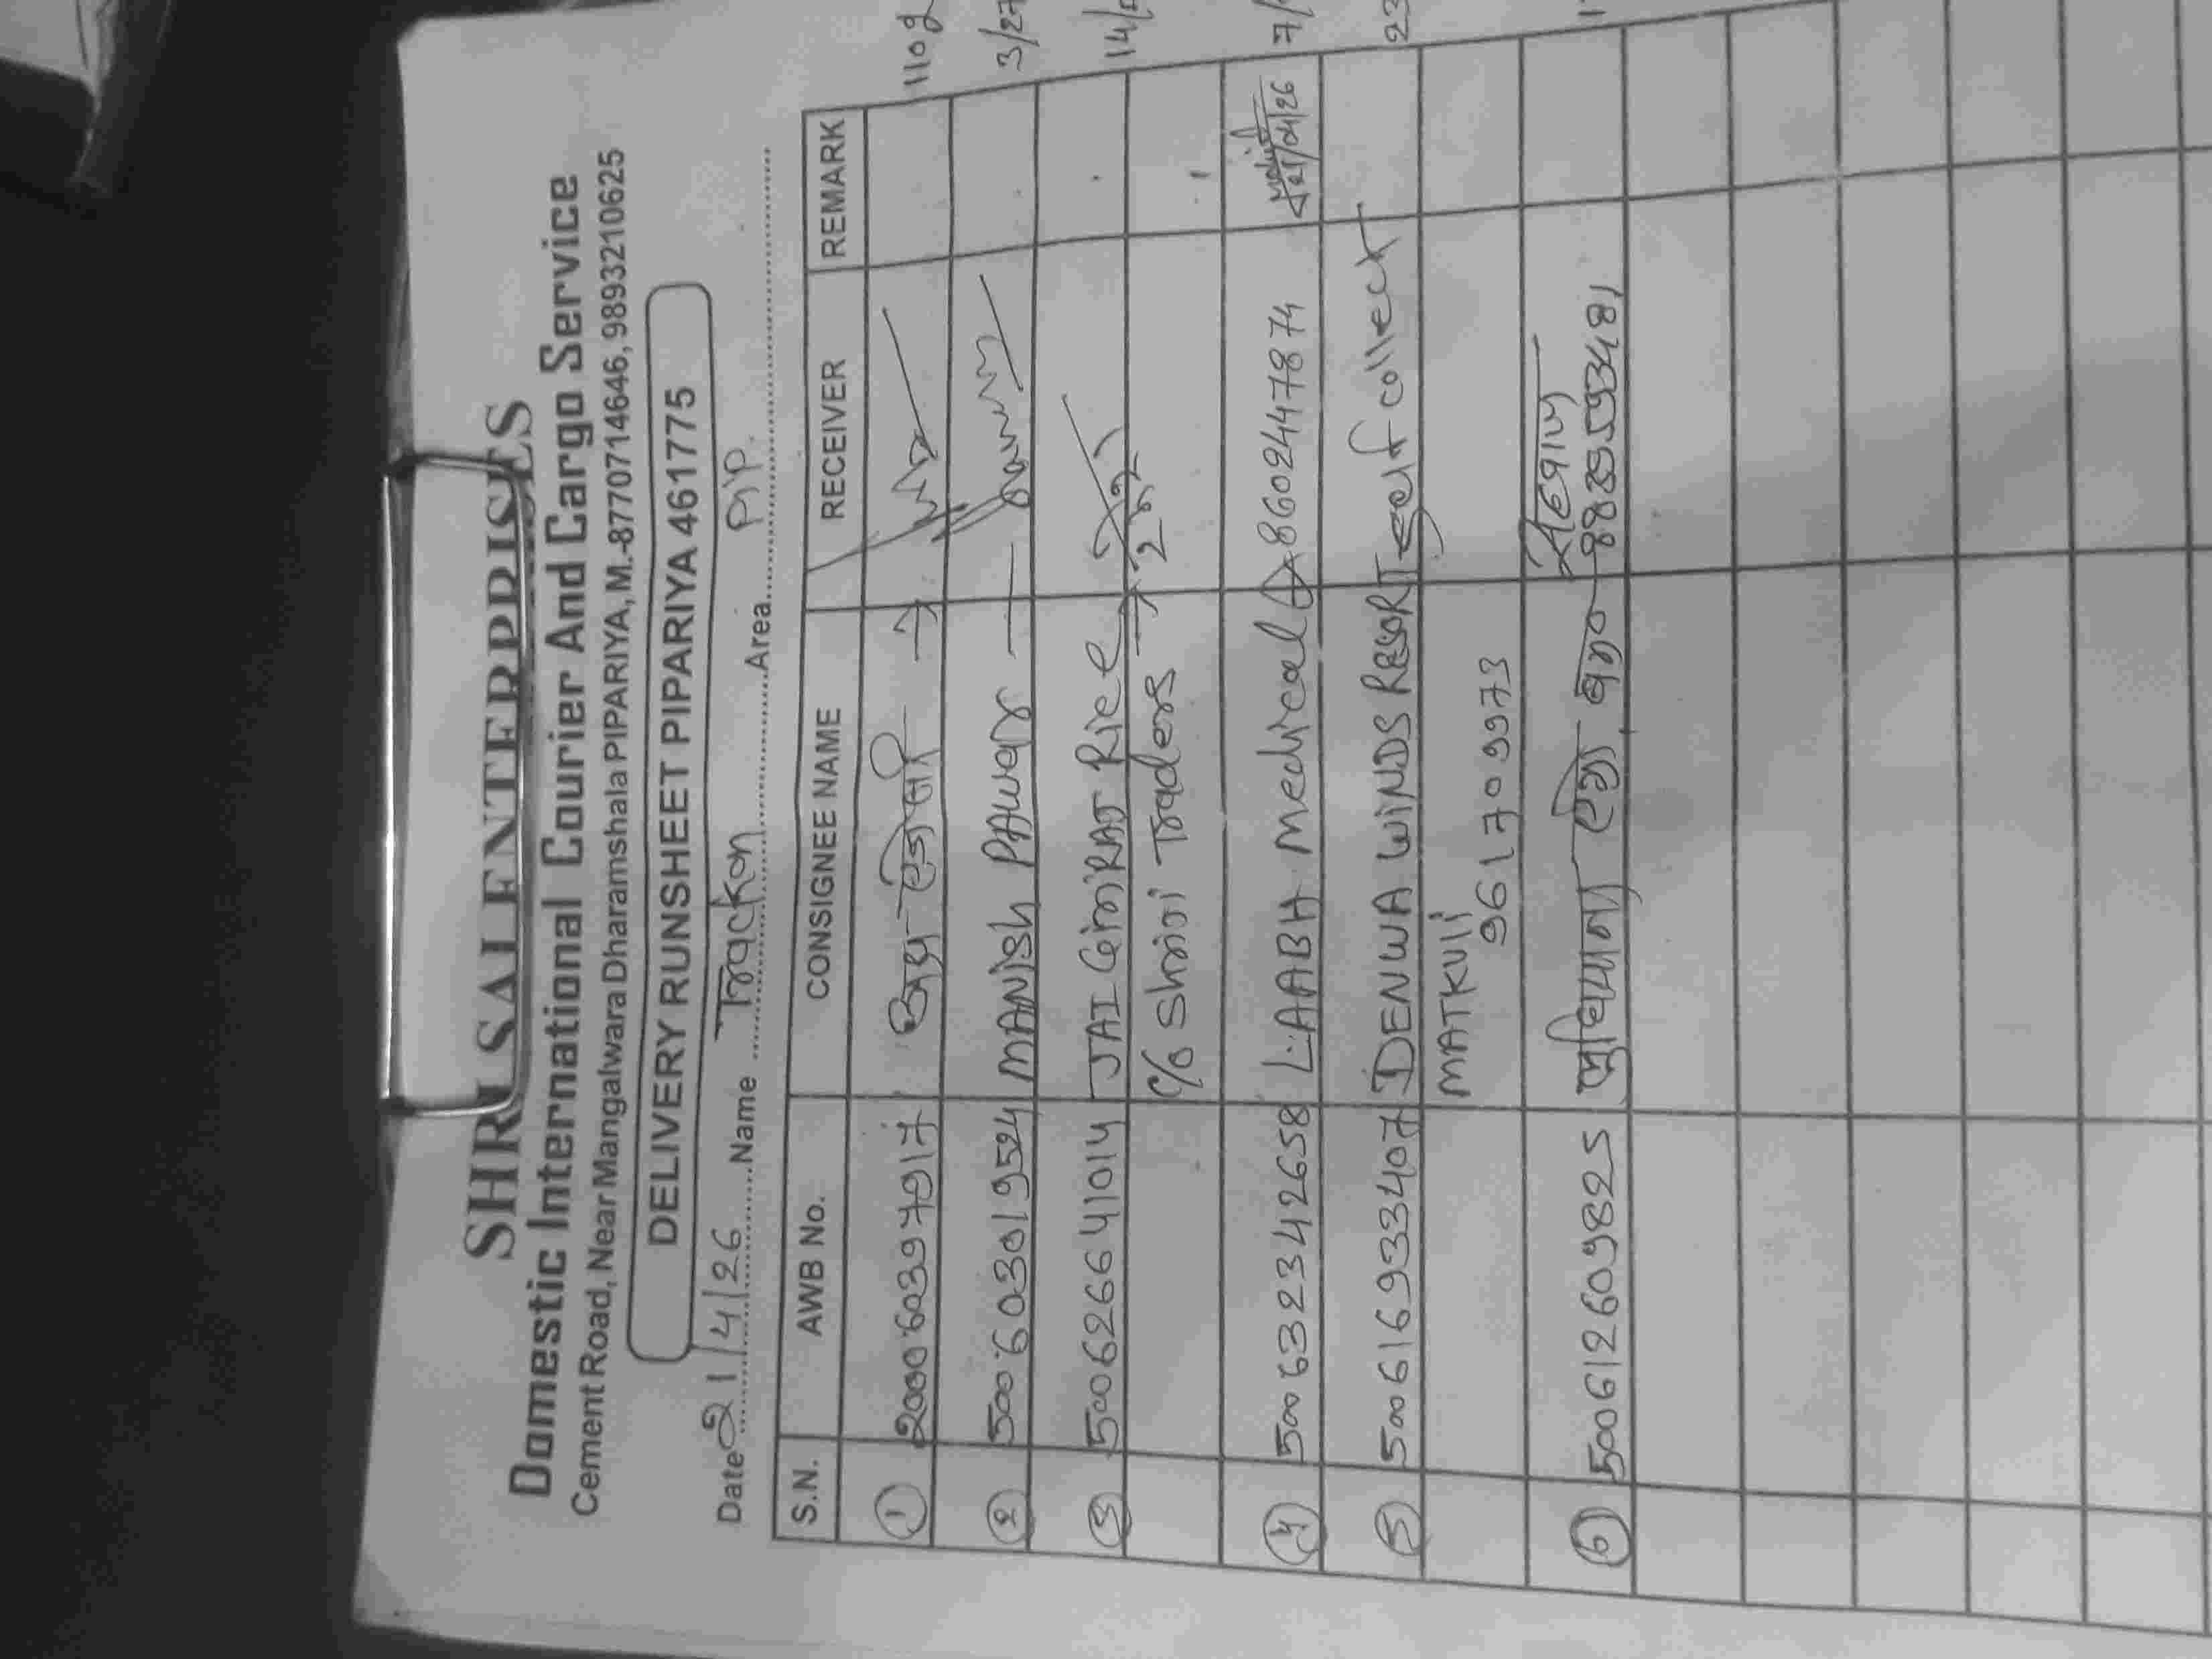 SHRI SAI ENTERPRISES
Domestic International Courier And Cargo Service
Cement Road, Near Mangalwara Dharamshala PIPARIYA, M.-8770714646, 9893210625
DELIVERY RUNSHEET PIPARIYA 461775
Date 21/4/26 Name Trackon Area PIP.
S.N. AWB No. CONSIGNEE NAME RECEIVER REMARK
1 200060397017 1102
2 500603019524 MANISH PAWAR 3/27
3 500626641014 JAI GIRIRAJ Rice 14/
C/o Shri Traders
4 500632342658 LAABH Medical 8602447874 21/04/26 7/
5 500616933407 DENWA WINDS RESORT Self collect 23
MATKULI
9617709973
6 500612609825 लुधियाना 8885593481